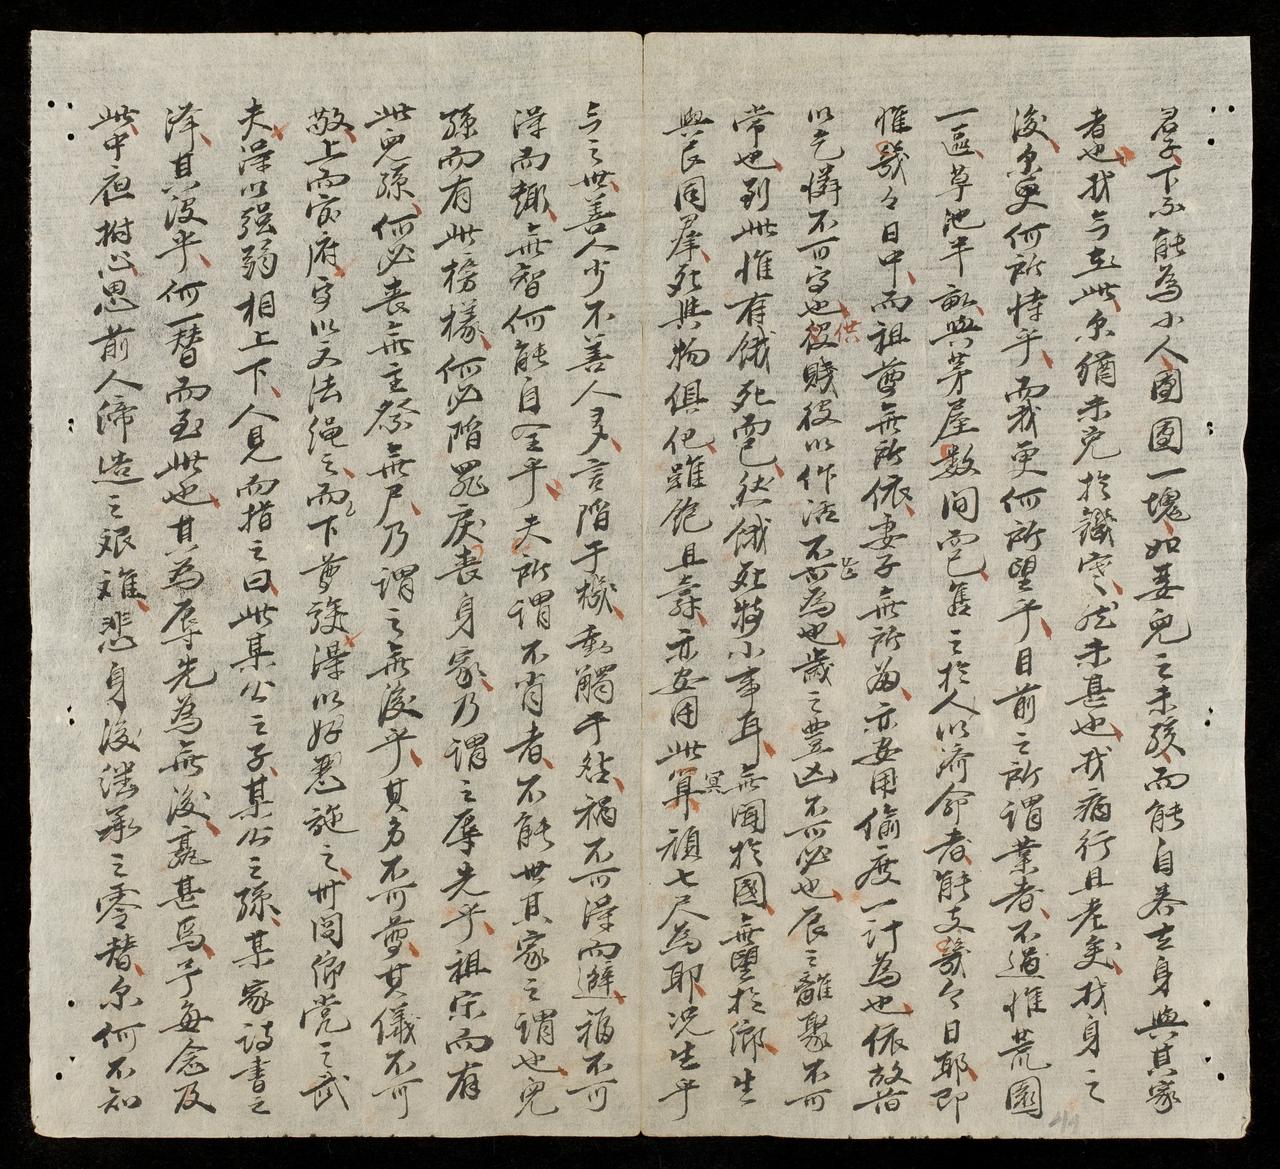 君子下不能為小人團團一塊如嬰兒之未孩而能自容其身與其家
者也我今在此尔猶未免於饑寒然未甚也我病行且老矣我身之
後尔更何所恃乎而我更何所望乎目前之所謂業者不過惟荒園
一區草池半畝與茅屋数间而已售之於人以濟命者能支幾今日耶即
惟幾今日中而祖尊無所依妻子無所為亦安用偷度一計為也依故舊
以乞憐不可守也役賤役以作活不可為也歲之豊凶不可必也辰之離聚不可
常也到此惟有餓死而已然餓死特小事耳無聞於國無望於鄉生
與民同羣死與物俱化雖飽且壽亦安用此冥頑七尺為耶况生乎
今之世善人少不善人多言陷于機動觸乎 禍不可得而避福不可
得而趣無智何能自全乎夫所謂不肖者不能世其家之謂也兒
孫而有此榜樣何必陷罪戾喪身家乃謂之辱先乎祖宗而有
此兒孫何必喪無主祭無尸乃謂之無後乎其分不可尊其儀不可
敬上而官府守以文法绳之而下尊 得以好惡施之卅閭鄉党之武
夫得以强弱相上下人見而指之曰此某公之子某公之孫某家詩書之
澤其沒乎何一替而至此也其為辱先為無後孰甚焉予每念及
此中夜拊心思前人締造之艰难悲身後继承之零替尔何不知
供